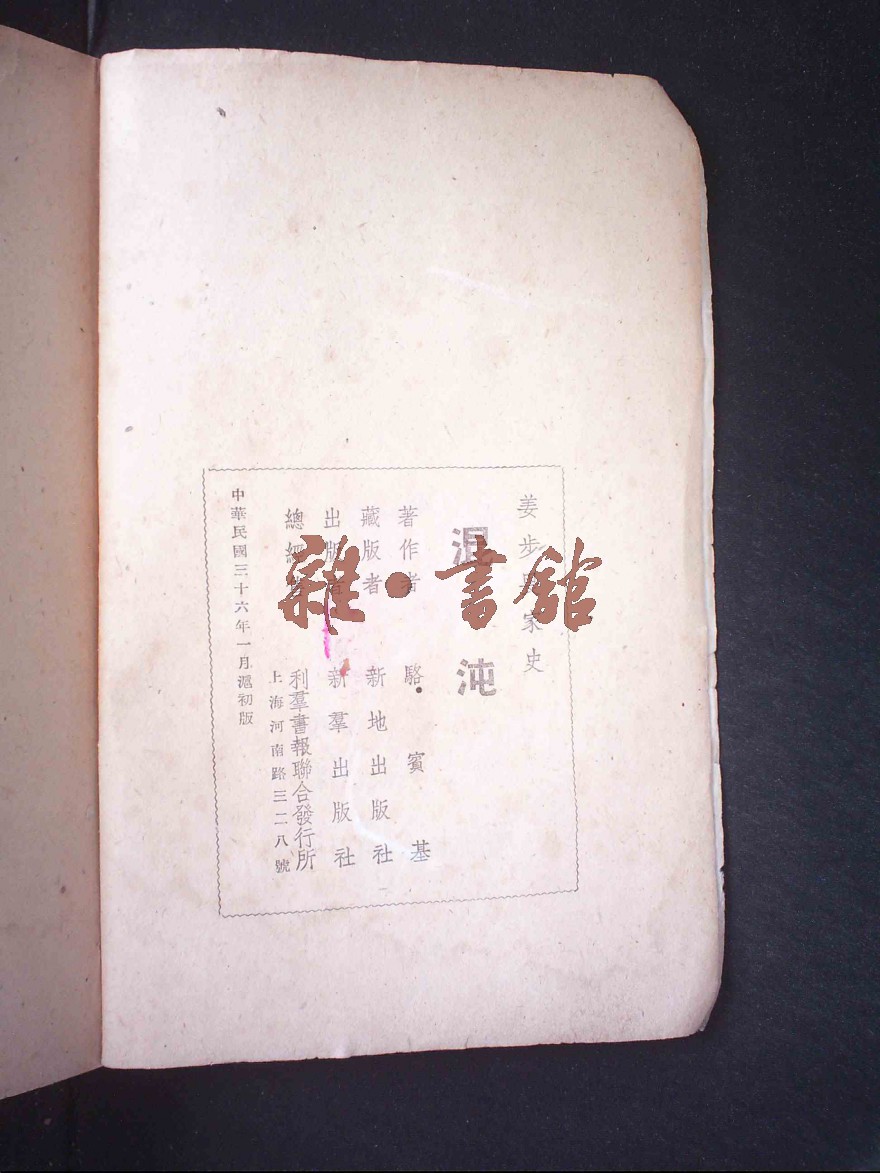 姜步畏家史
混沌
著作者 駱賓基
藏版者 新地出版社
出版者 新羣出版社
總經售 利羣書報聯合發行所
上海河南路三二八號
中華民國三十六年一月滬初版
雜·書館